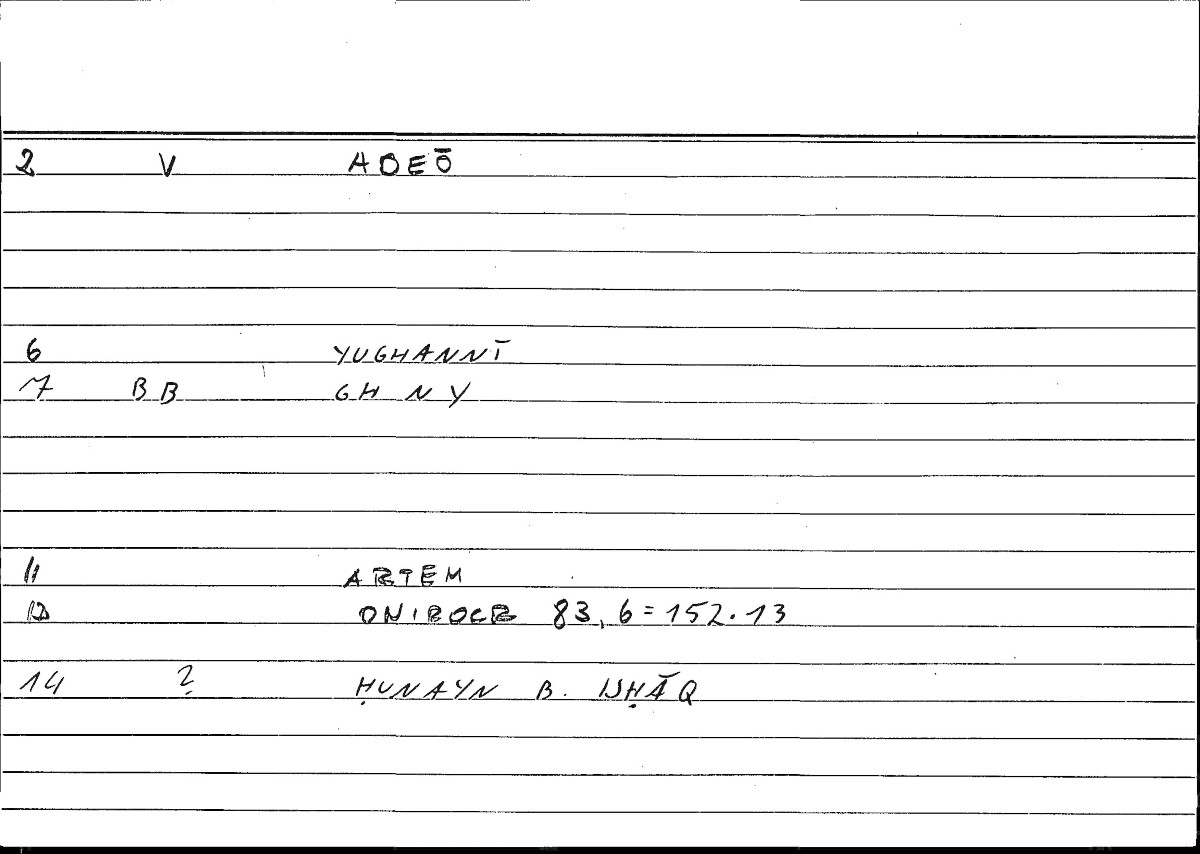 2 V AOEŌ
6 YUGHANNĪ
7 BB GH N Y
11 ARTEM
12 ONIROCR 83,6=152.13
14 ? ḤUNAYN B. ISḤĀQ